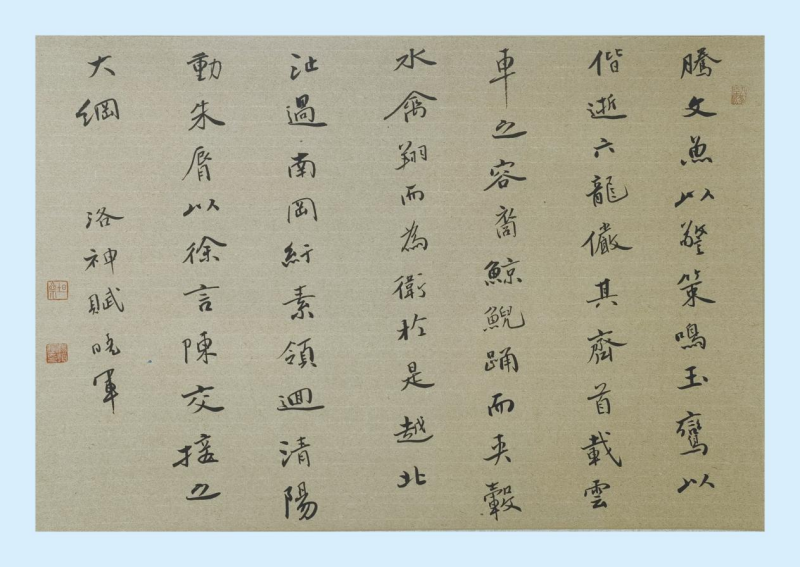 騰文魚以警策鳴玉鸞以
偕逝六龍儼其齊首載雲
車之容裔鯨鯢踊而夾轂
水禽翔而為衛於是越北
沚過南岡紆素領迴清陽
動朱脣以徐言陳交接之
大綱
洛神賦曉軍